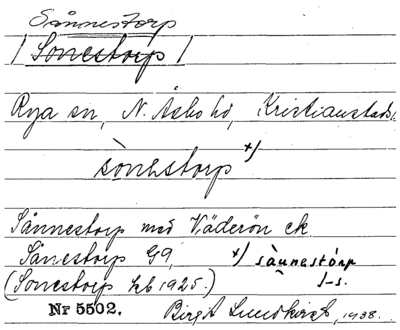 Sånnestorp
/ Sonestorp /
Rya sn, N. Åsbo hd, Kristianstads l.
sònestorp x)
Sånnestorp med Väderön ek
Sånestorp G9, x) sånnestårp
(Sonestorp hb 1925.) J-s.
Nr 5502. Birgit Lundkvist, 1938.